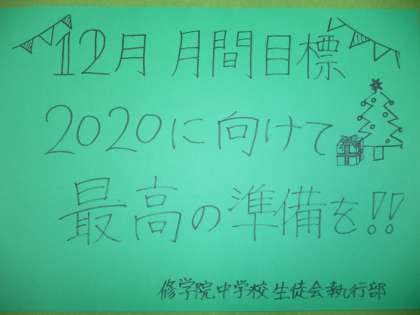 12月 月間目標
2020に向けて
最高の準備を!!
修学院中学校生徒会執行部